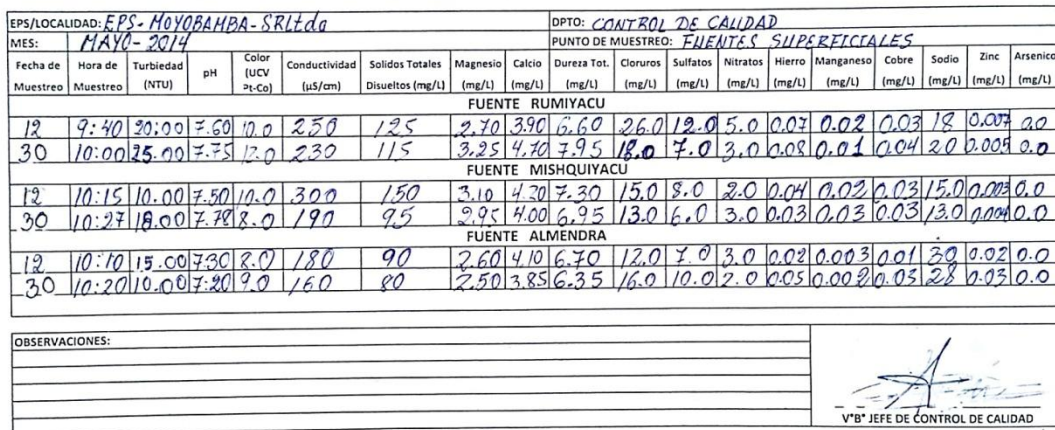 EPS/LOCALIDAD: EPS- MOYOBAMBA- SRLtda DPTO: CONTROL DE CALIDAD
MES: MAYO- 2014 PUNTO DE MUESTREO: FUENTES SUPERFICIALES
Fecha de Muestreo Hora de Muestreo Turbiedad (NTU) pH Color (UCV Pt-Co) Conductividad (µS/cm) Solidos Totales Disueltos (mg/L) Magnesio (mg/L) Calcio (mg/L) Dureza Tot. (mg/L) Cloruros (mg/L) Sulfatos (mg/L) Nitratos (mg/L) Hierro (mg/L) Manganeso (mg/L) Cobre (mg/L) Sodio (mg/L) Zinc (mg/L) Arsenico (mg/L)
FUENTE RUMIYACU
12 9:40 20:00 7.60 10.0 250 125 2.70 3.90 6.60 26.0 12.0 5.0 0.07 0.02 0.03 18 0.007 0.0
30 10:00 25.00 7.75 12.0 230 115 3.25 4.70 7.95 18.0 7.0 3.0 0.08 0.01 0.04 20 0.005 0.0
FUENTE MISHQUIYACU
12 10:15 10.00 7.50 10.0 300 150 3.10 4.20 7.30 15.0 8.0 2.0 0.04 0.02 0.03 15.0 0.003 0.0
30 10:27 18.00 7.78 8.0 190 95 2.95 4.00 6.95 13.0 6.0 3.0 0.03 0.03 0.03 13.0 0.004 0.0
FUENTE ALMENDRA
12 10:10 15.00 7.30 8.0 180 90 2.60 4.10 6.70 12.0 7.0 3.0 0.02 0.003 0.01 30 0.02 0.0
30 10:20 10.00 7:20 9.0 160 80 2.50 3.85 6.35 16.0 10.0 2.0 0.05 0.002 0.03 28 0.03 0.0
OBSERVACIONES:
V°B° JEFE DE CONTROL DE CALIDAD